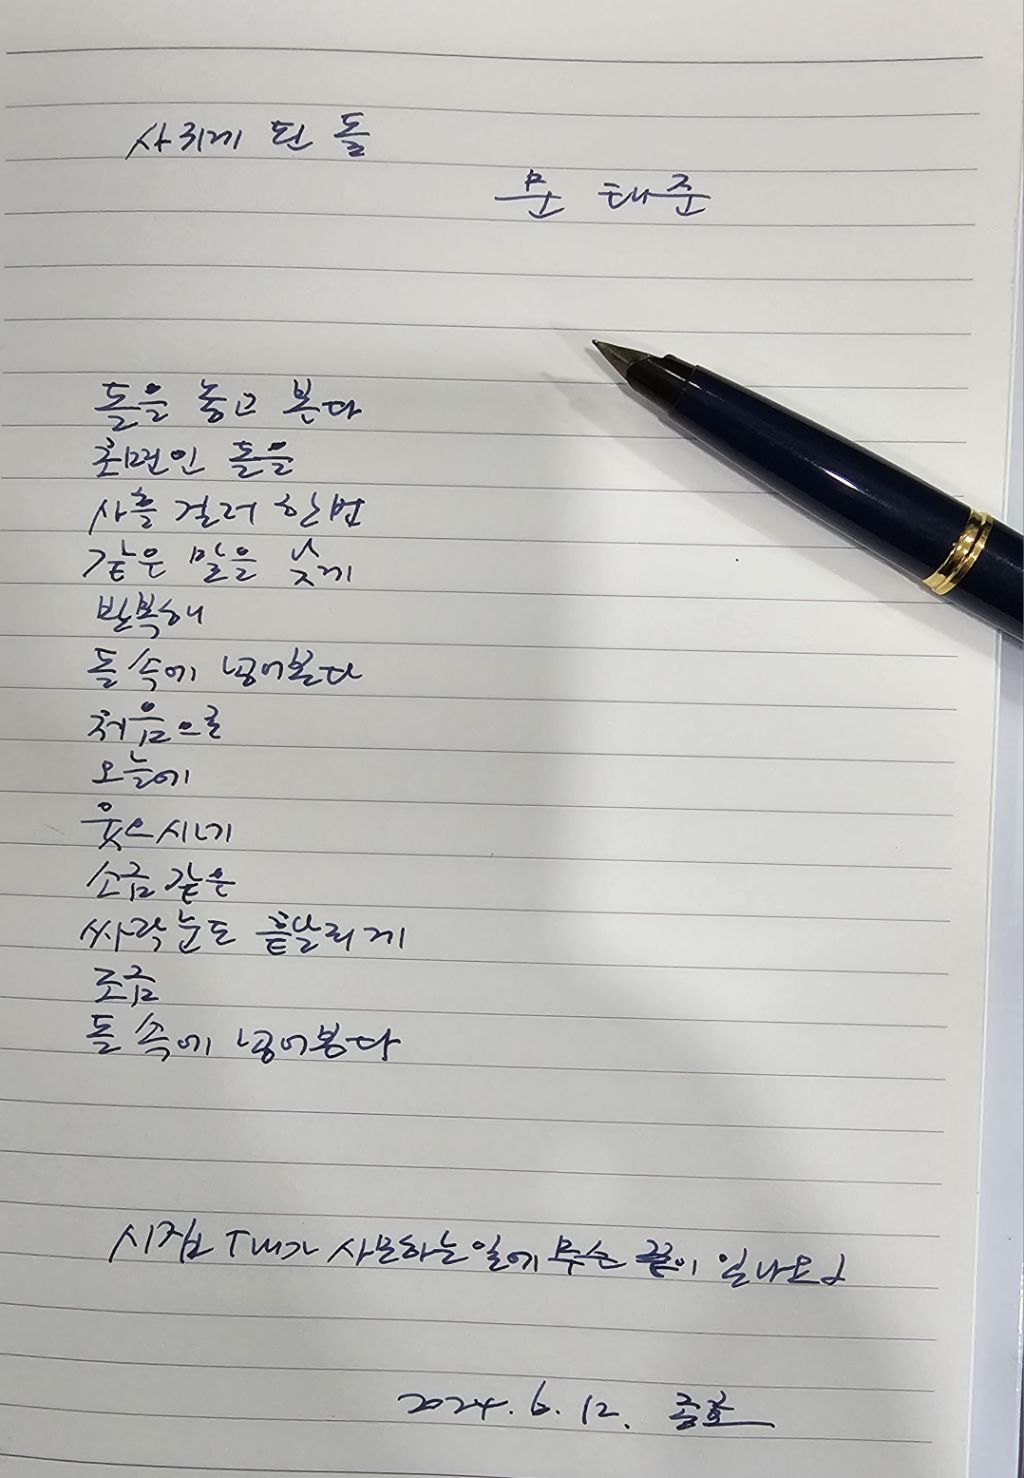 사귀게 된 돌
문 태준
돌을 놓고 본다
초면인 돌을
사흘 걸러 한번
같은 말을 낮게
반복해
돌 속에 넣어본다
처음으로
오늘에
웃으시네
소금 같은
싸락눈도 흩날리게
조금
돌 속에 넣어본다
시집 내가 사모하는 일에 무슨 끝이 있나요
2024. 6. 12.